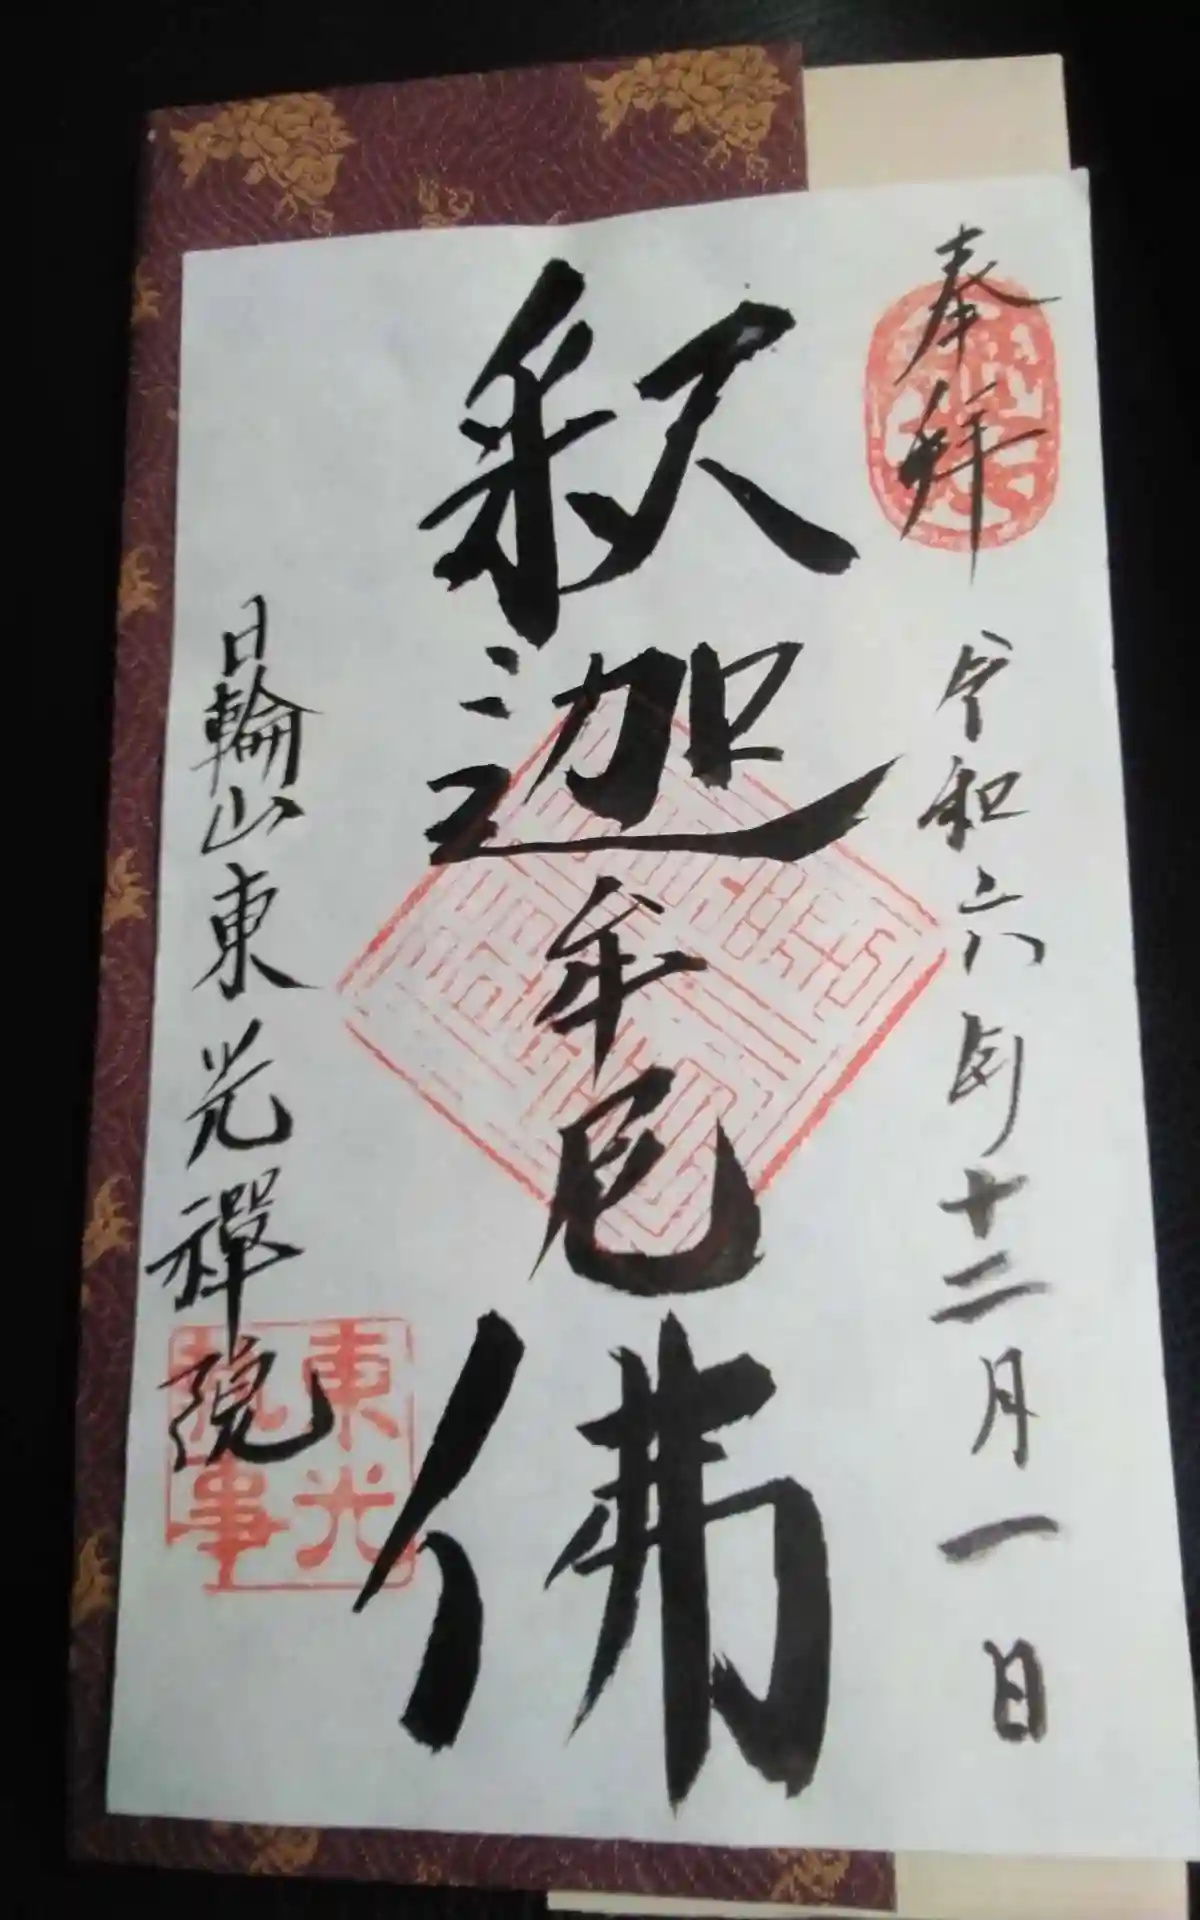 奉拝
令和六年十二月一日
釈迦牟尼佛
日輪山東光禅院
東光
事